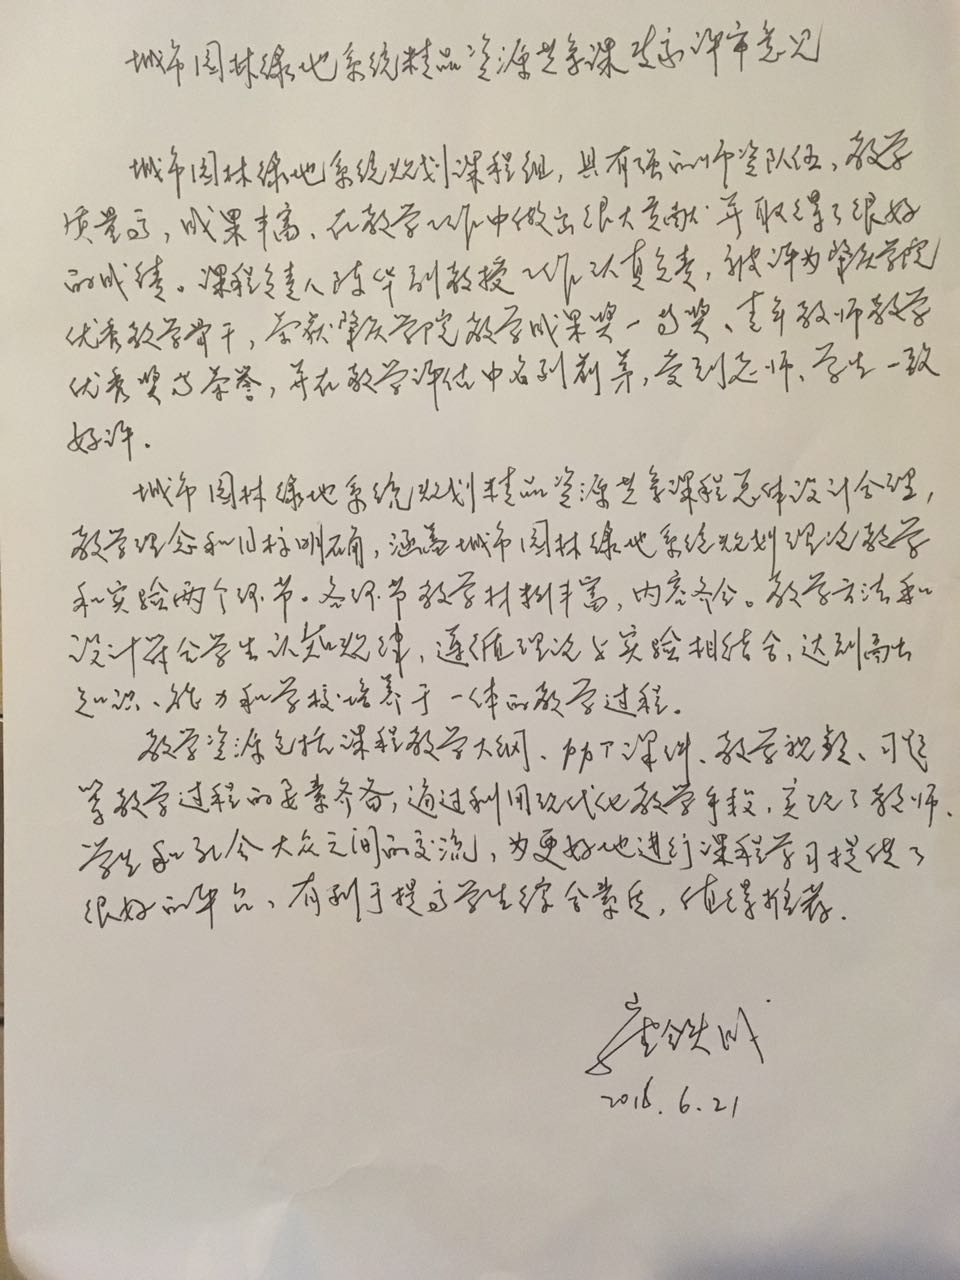 城市园林绿地系统精品资源共享课专家评审意见
城市园林绿地系统规划课程组，具有强的师资队伍、教学
质量高，成果丰富、在教学工作中做出很大贡献并取得了很好
的成绩。课程负责人陈华利教授工作认真负责，被评为肇庆学院
优秀教学骨干，荣获肇庆学院教学成果奖一等奖、青年教师教学
优秀奖等荣誉，并在教学评估中名列前茅，受到老师、学生一致
好评.
城市园林绿地系统规划精品资源共享课程总体设计合理，
教学理念和目标明确，涵盖城市园林绿地系统规划理论教学
和实验两个环节。各环节教学材料丰富，内容齐全。教学方法和
设计符合学生认知规律，遵循理论与实验相结合，达到
知识、能力和学校培养于一体的教学过程。
教学资源包括课程教学大纲、PPT课件、教学视频、习题
等教学过程的要素齐备，通过利用现代化教学手段，实现了教师.
学生和社会大众之间的交流，为更好地进行课程学习提供了
很好的平台、有利于提高学生综合素质，值得推荐.
崔铁成
2016.6.21